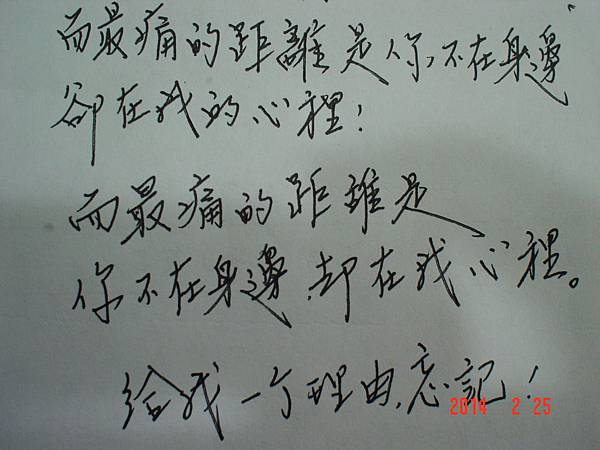 而最痛的距離是你,不在身邊
卻在我的心裡!
而最痛的距離是
你不在身邊.却在我心裡。
給我一个理由.忘記!
2014 2 25